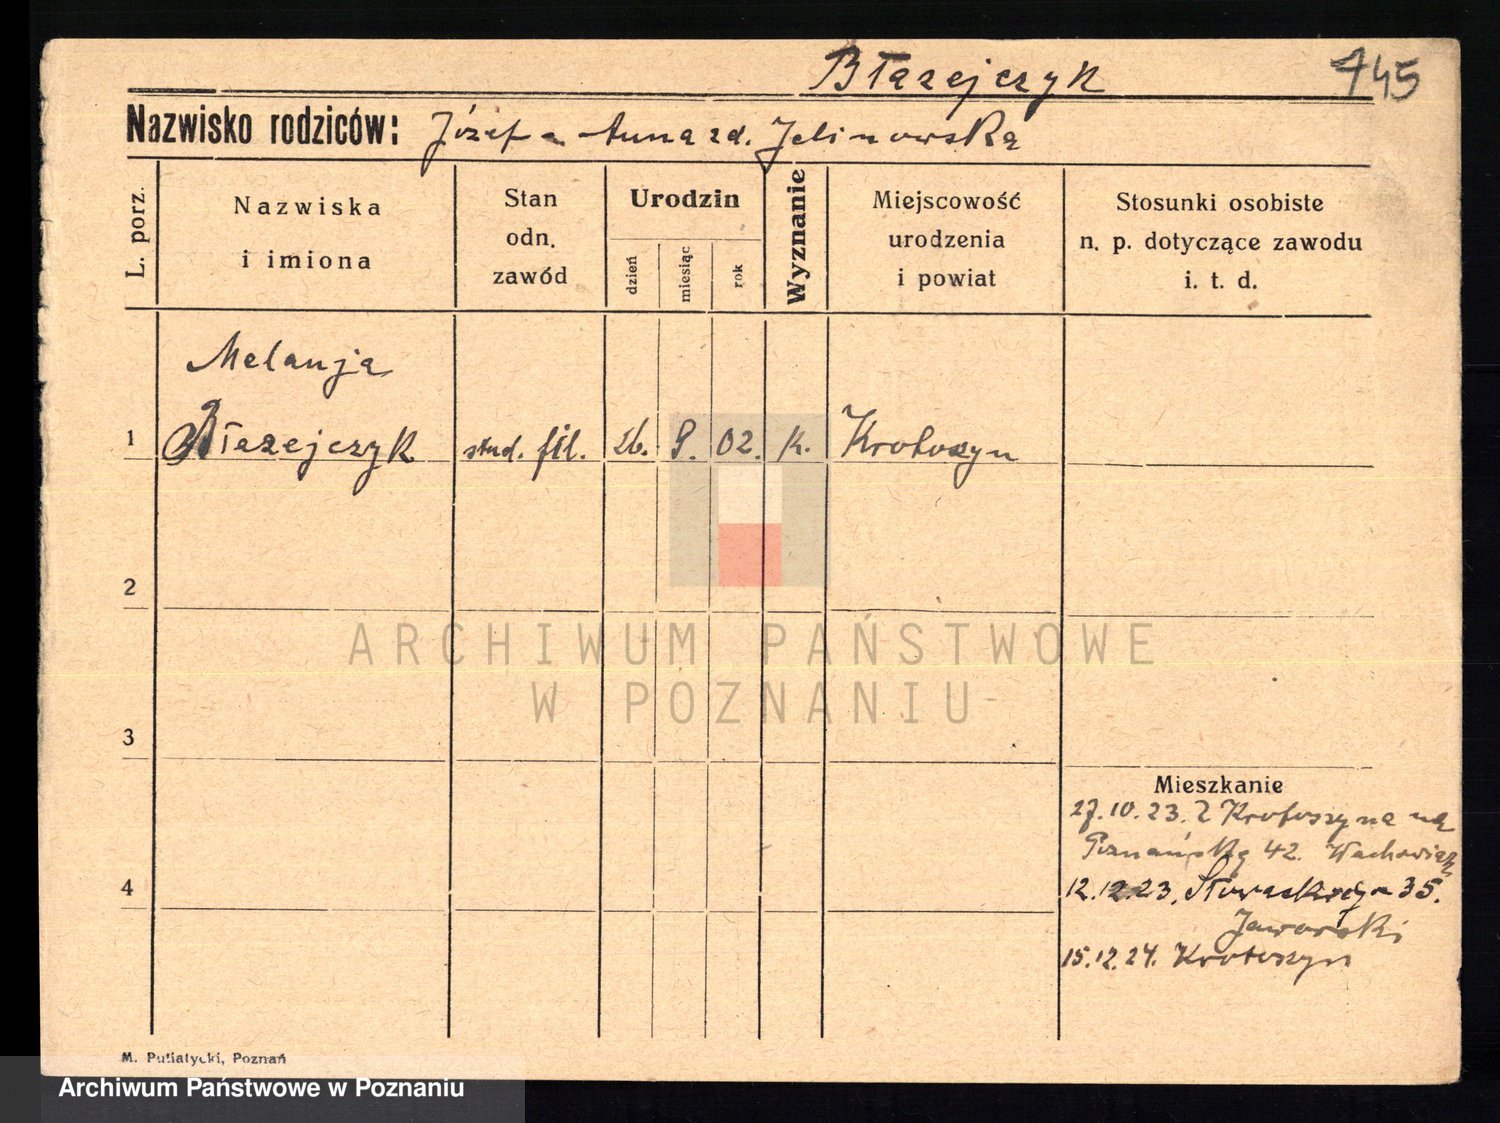 Błażejczyk 745
Nazwisko rodziców: Józef a Anna zd. Jelinowska
L. porz.
Nazwiska i imiona
Stan odn. zawód
Urodzin
dzień
miesiąc
rok
Wyznanie
Miejscowość urodzenia i powiat
Stosunki osobiste n. p. dotyczące zawodu i. t. d.
Melanja
1 Błażejczyk stud. fil. 26. 9. 02. k. Krotoszyn
2
ARCHIWUM PAŃSTWOWE
W POZNANIU
3
Mieszkanie
27.10.23. Z Krotoszyna na
Poznańską 42. Wachowiak
4
12.12.23. 35.
Jaworski
15.12.24. Krotoszyn
M. Putiatycki, Poznań
Archiwum Państwowe w Poznaniu